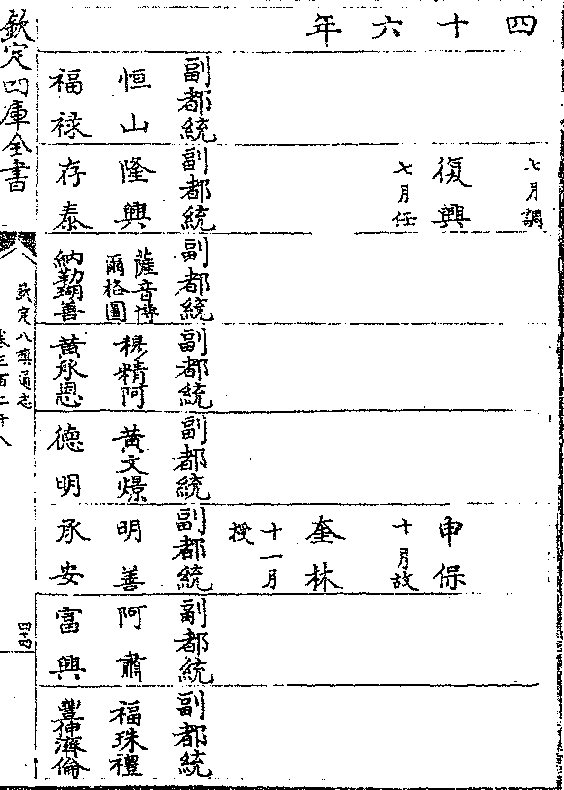 四十六年
副都統
恒山
福禄
七月調
復興
七月任
副都統
隆興
存泰
副都統
薩音博
爾格圖
副都統
穆精阿
黄承恩
副都統
黄文燝
德明
申保
十月故
奎林
十一月
授
副都統
明善
承安
副都統
阿肅
富興
副都統
福珠禮
豐紳濟倫
欽定四庫全書
欽定八旗通志
卷三百二十八